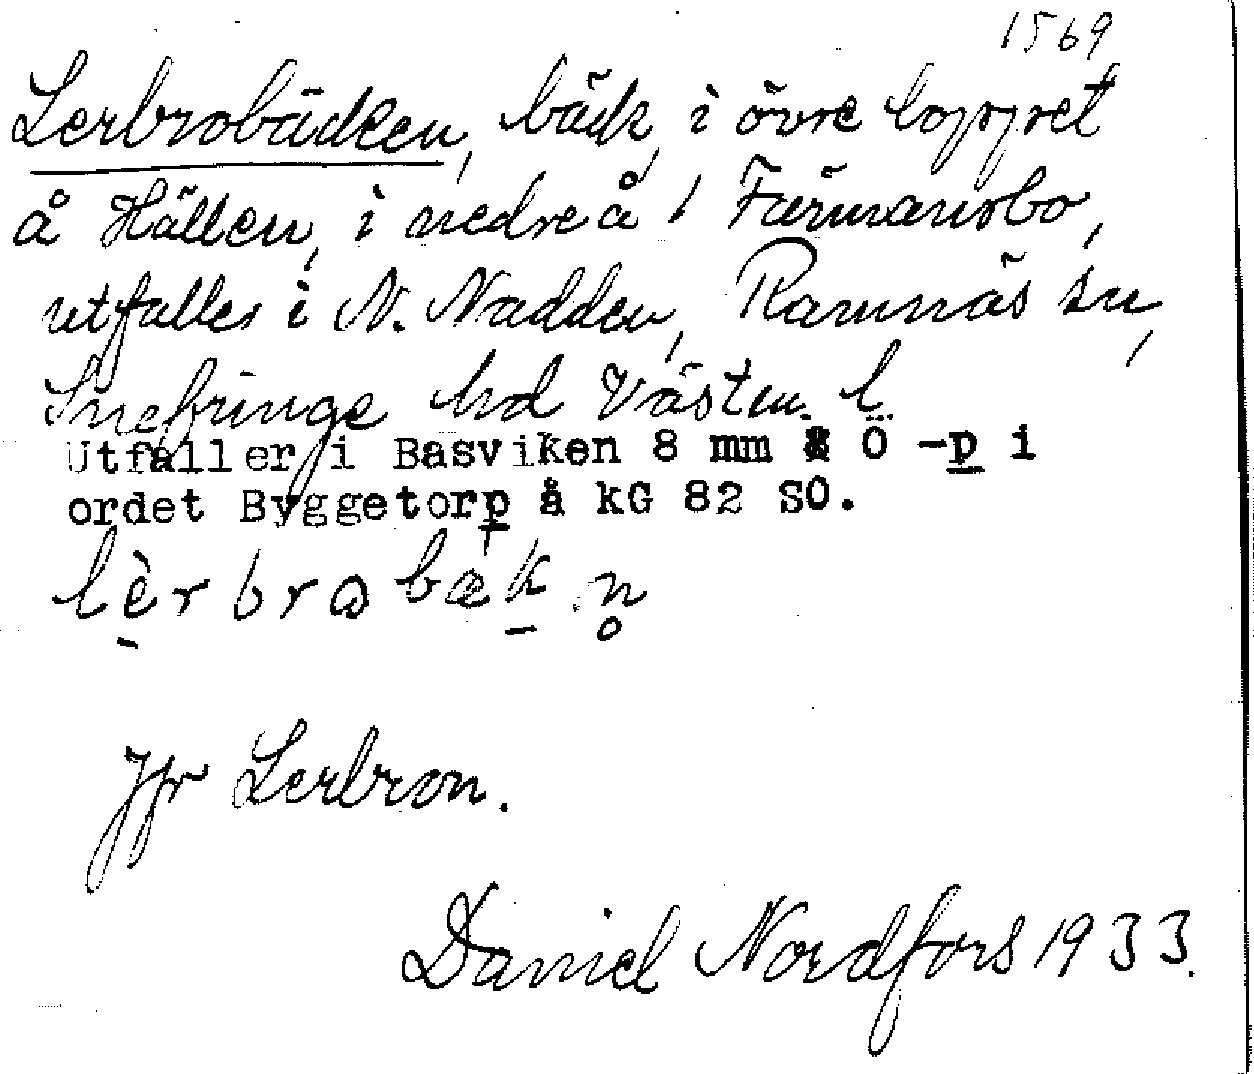 1569
Lerbrobäcken, bäck, i övre loppet
å Hällen, i nedre å Färmansbo,
utfaller i N. Nadden, Ramnäs sn,
Snefringe hd Västm. l.
Utfaller i Basviken 8 mm Ö -p i
ordet Byggetorp å kG 82 SO.
lèrbrobækn̥
Jfr Lerbron.
Daniel Nordfors 1933.